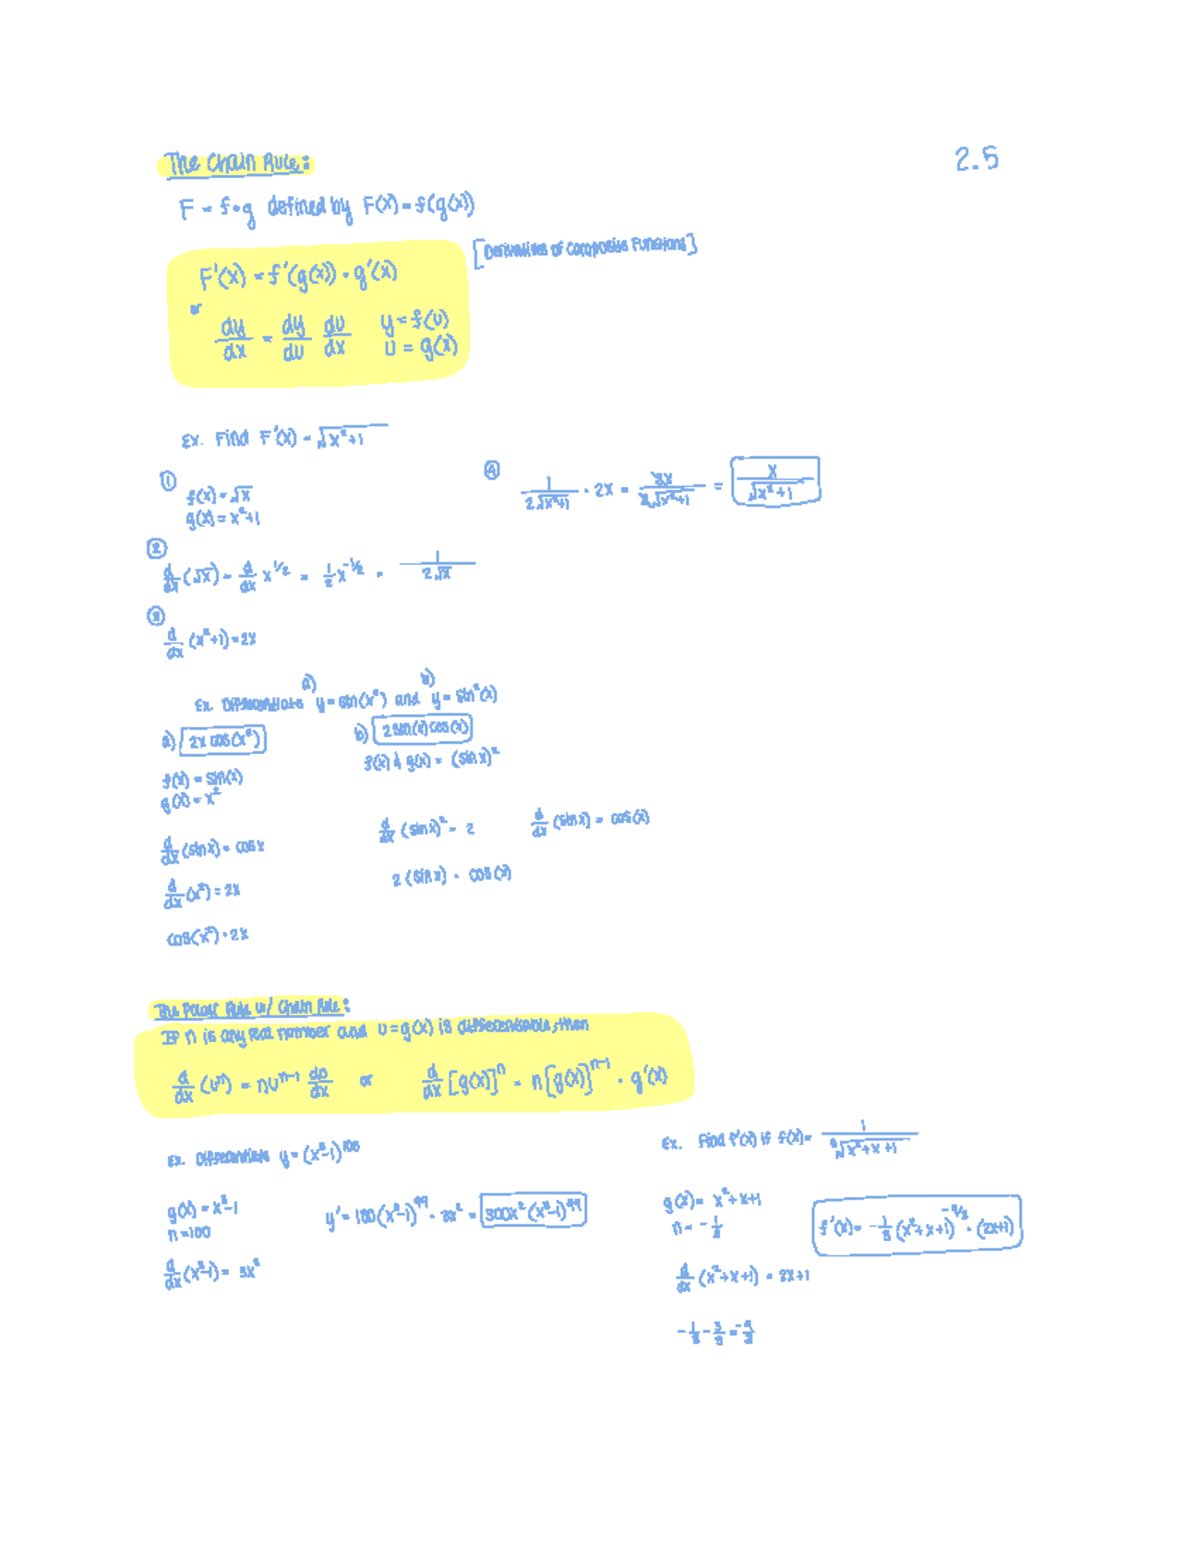 The Chain Rule:
2.5
F = f∘g defined by F(x) = f(g(x))
[Derivatives of Composite Functions]
F'(x) = f'(g(x)) · g'(x)
or
dy/dx = dy/du du/dx y = f(u) u = g(x)
Ex. Find F'(x) = √x²+1
① f(x) = √x
g(x) = x²+1
④ 1/2√x²+1 · 2x = 2x/2√x²+1 = x/√x²+1
② d/dx (√x) = d/dx x^1/2 = 1/2 x^-1/2 = 1/2√x
③ d/dx (x²+1) = 2x
a) b)
Ex. Differentiate y = sin(x²) and y = sin²(x)
a) 2x cos(x²)
f(x) = sin(x)
g(x) = x²
d/dx (sin x) = cos x
d/dx (x²) = 2x
cos(x²) · 2x
b) 2 sin(x) cos(x)
f(x) & g(x) = (sin x)²
d/dx (sin x)² = 2 d/dx (sin x) = cos(x)
2 (sin x) · cos(x)
The Power Rule w/ Chain Rule:
If n is any real number and u = g(x) is differentiable, then
d/dx (uⁿ) = nuⁿ⁻¹ du/dx or d/dx [g(x)]ⁿ = n[g(x)]ⁿ⁻¹ · g'(x)
Ex. Differentiate y = (x³-1)¹⁰⁰
g(x) = x³-1
n = 100
y' = 100(x³-1)⁹⁹ · 3x² = 300x²(x³-1)⁹⁹
d/dx (x³-1) = 3x²
Ex. Find f'(x) if f(x) = 1/³√x²+x+1
g(x) = x²+x+1
n = -1/3
f'(x) = -1/3 (x²+x+1)^-4/3 · (2x+1)
d/dx (x²+x+1) = 2x+1
-1/3 - 3/3 = -4/3